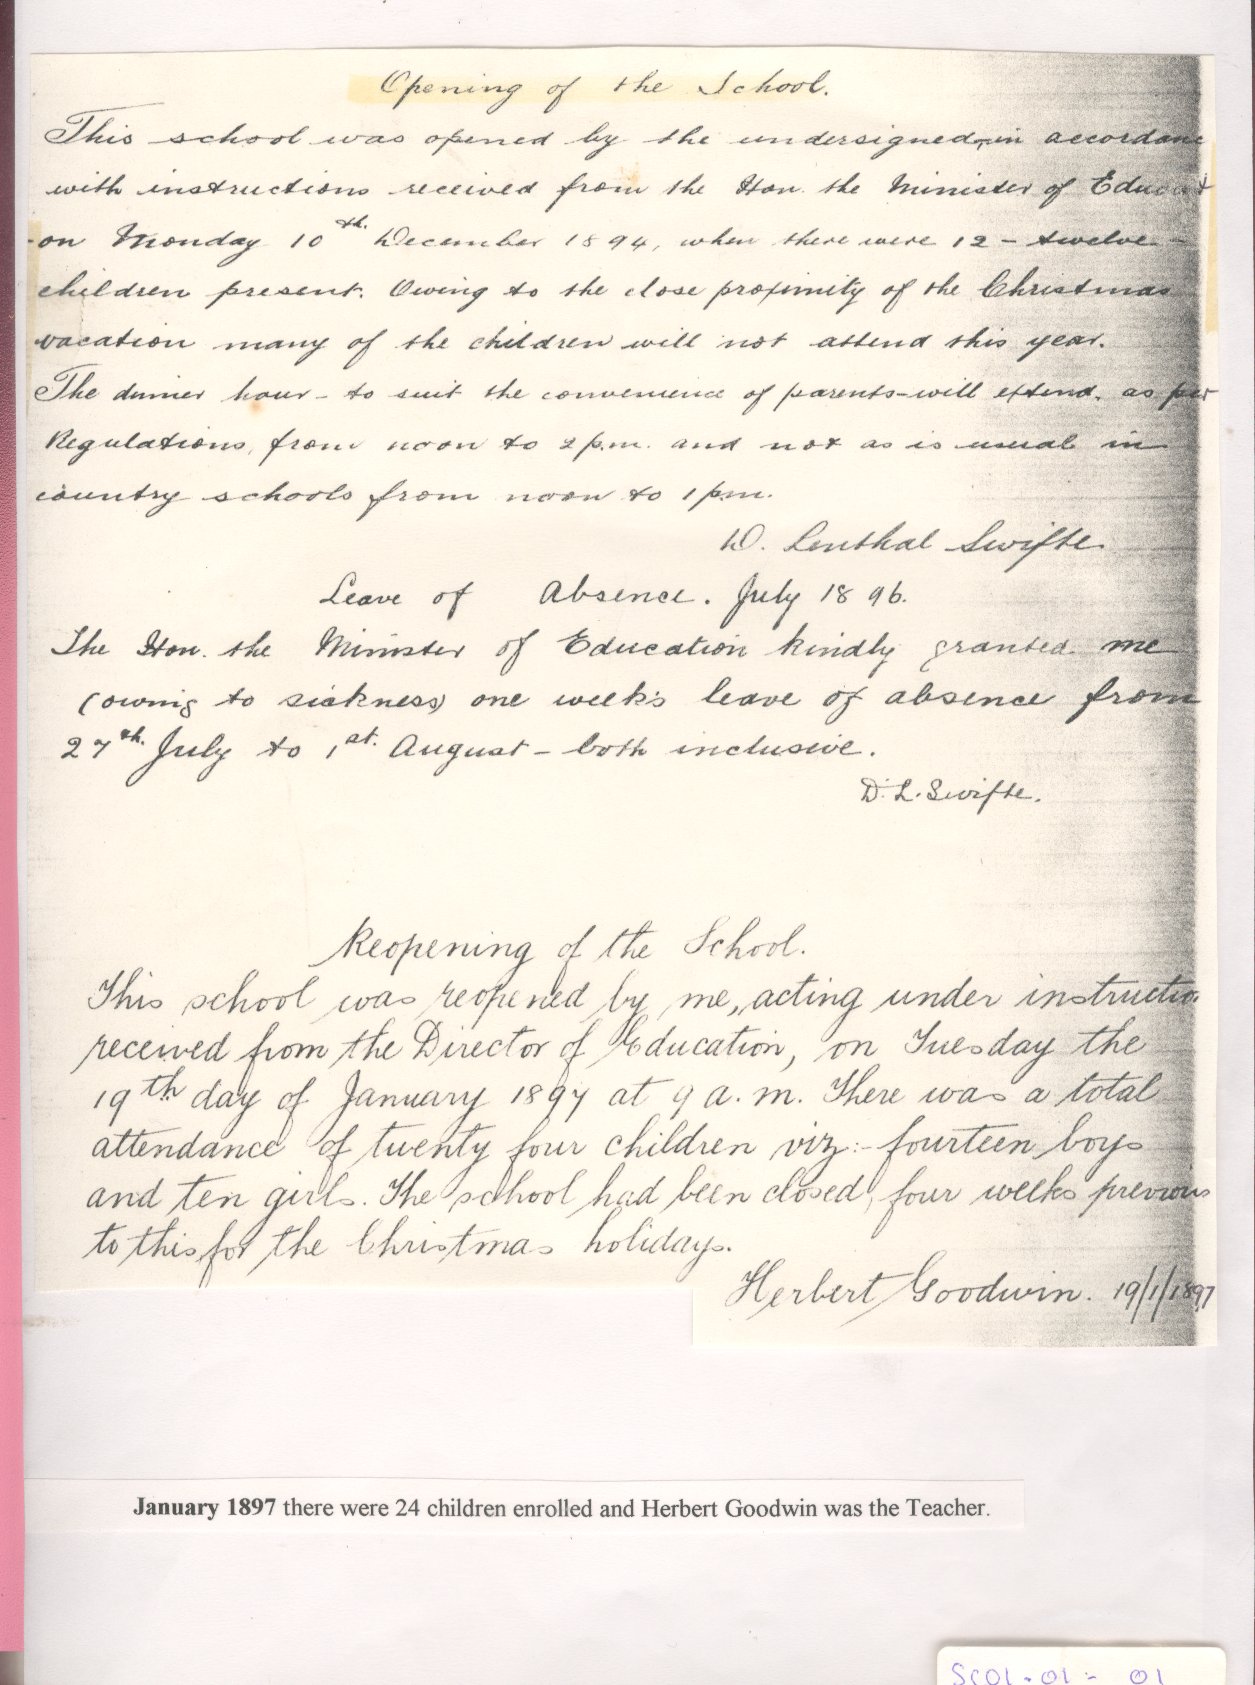 Opening of the School.
This school was opened by the undersigned, in accordanc
with instructions received from the Hon. the Minister of Educat
on Monday 10th. December 1894, when there were 12 - twelve -
children present. Owing to the close proximity of the Christmas
vacation many of the children will not attend this year.
The dinner hour - to suit the convenience of parents - will extend, as per
Regulations, from noon to 2 p.m. and not as is usual in
country schools from noon to 1 p.m.
D. Lenthal Swifte
Leave of Absence. July 1896.
The Hon. the Minister of Education kindly granted me
(owing to sickness) one week's leave of absence from
27th. July to 1st. August - both inclusive.
D. L. Swifte.
Reopening of the School.
This school was reopened by me, acting under instructio
received from the Director of Education, on Tuesday the
19th day of January 1897 at 9 a.m. There was a total
attendance of twenty four children viz:- fourteen boys
and ten girls. The school had been closed, four weeks previous
to this, for the Christmas holidays.
Herbert Goodwin. 19/1/1897
January 1897 there were 24 children enrolled and Herbert Goodwin was the Teacher.
SC01-01- 01